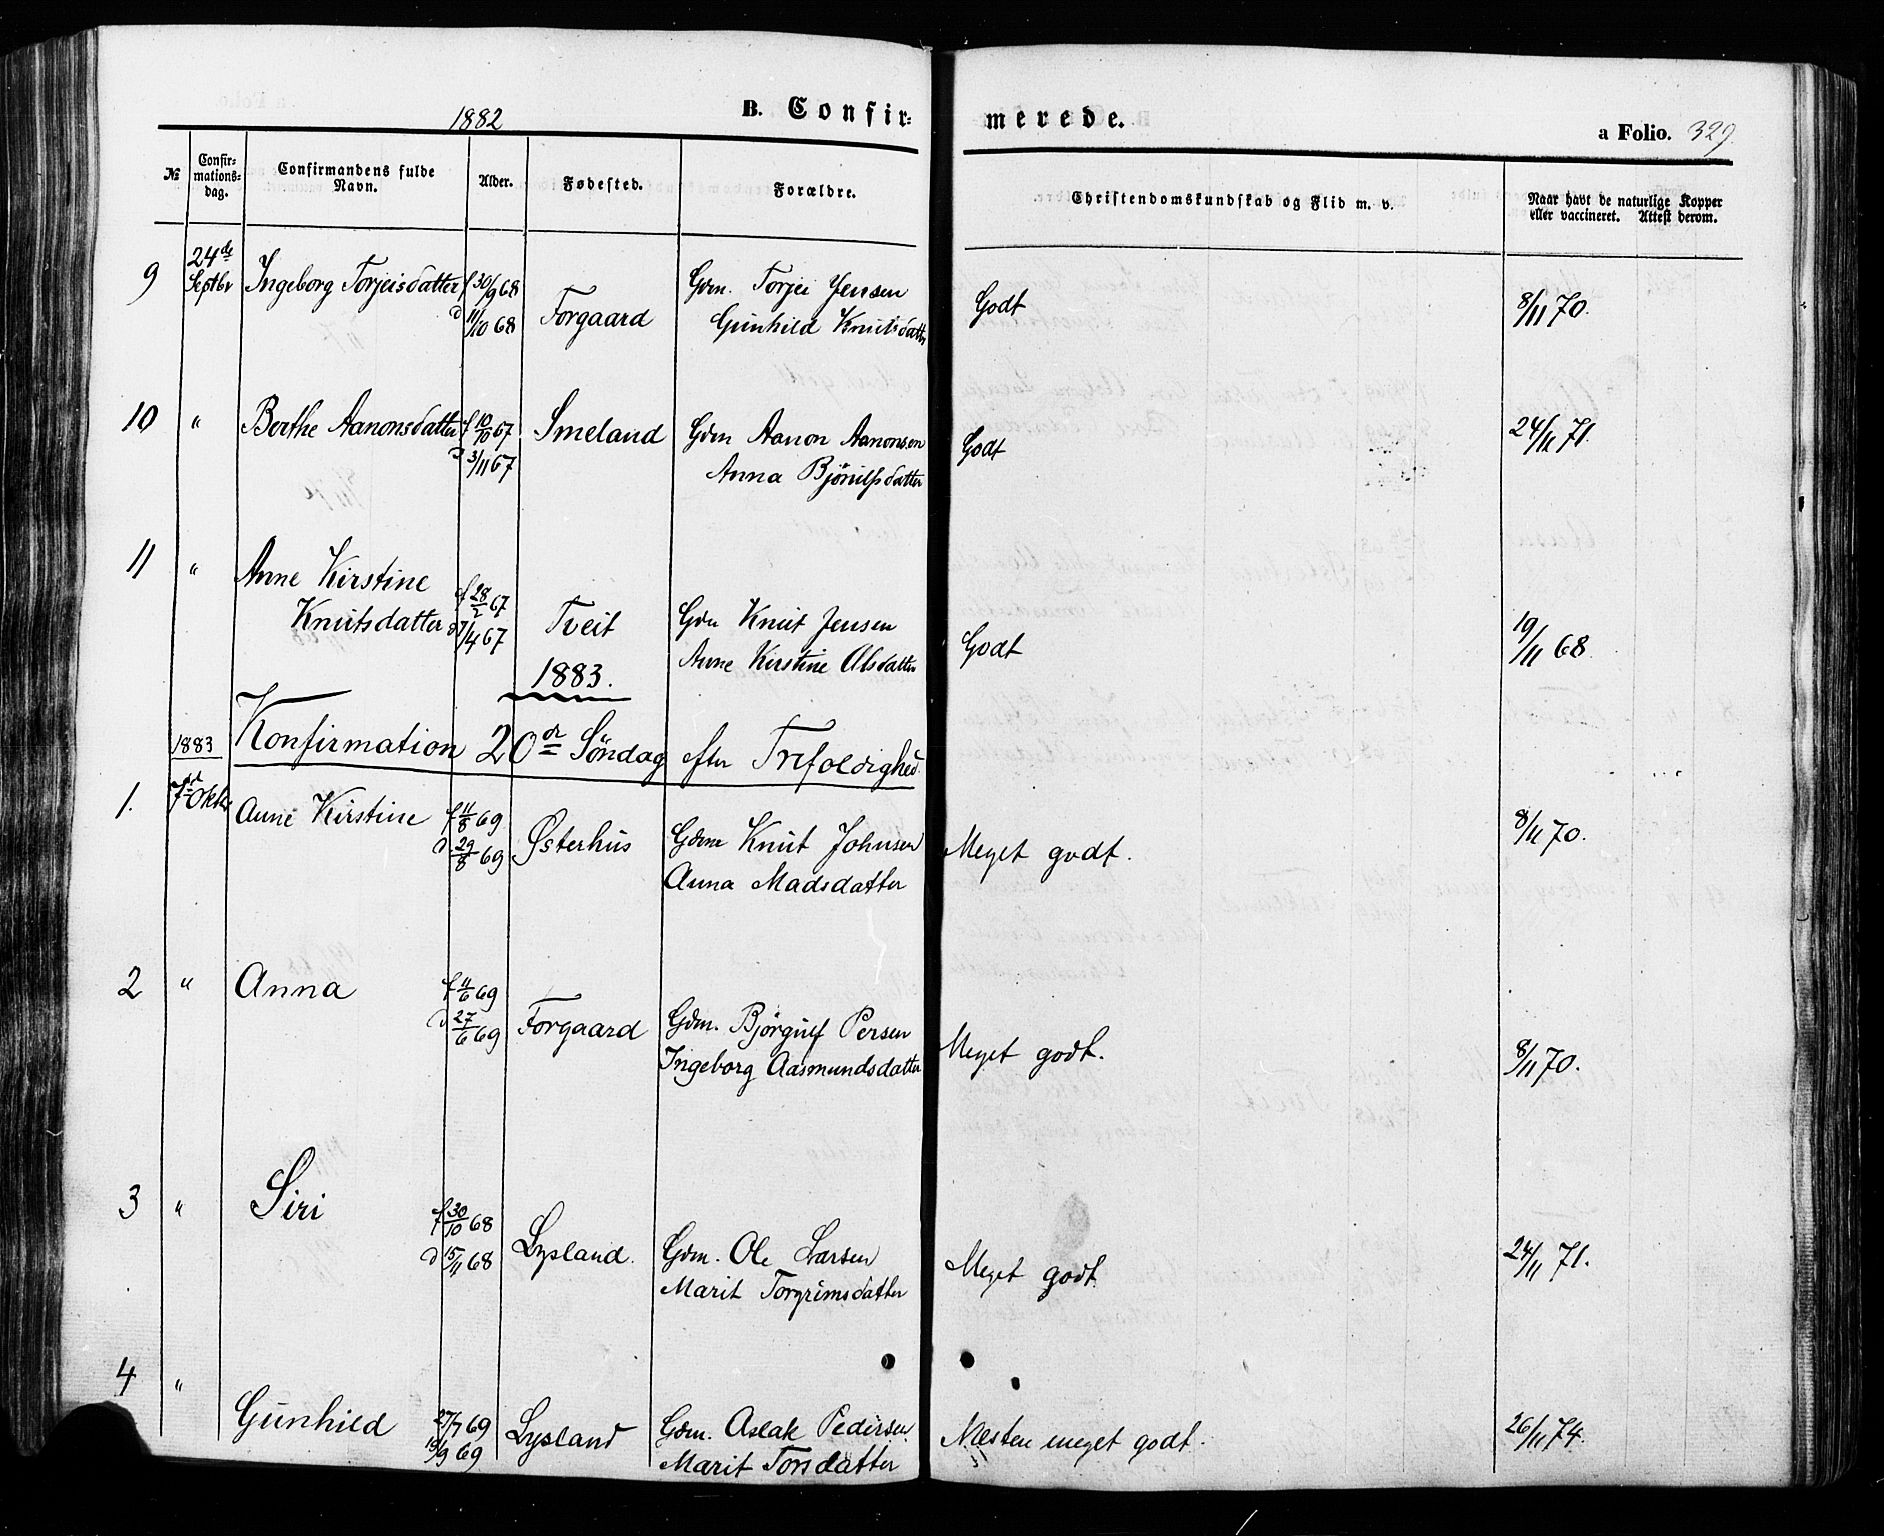 1882 B. Confir= merede. a Folio. 329.
№ Confir=mations=dag. Confirmandens fulde Navn. Alder. Fødested. Forældre. Christendomskundskab og Flid m. v. Naar havt de naturlige Kopper eller vaccineret. Attest derom.
9 24de Septbr Ingeborg Torjeisdatter f 30/9 68 Gdm. Torjei Jensen
d 11/10 68 Torgaard Gunhild Knutsdatter Godt 8/11 70.
10 " Berthe Aanonsdatter f 10/10 67 Smeland Gdm Aanon Aanonsen Godt 24/11 71.
d 3/11 67 Anna Bjönulfsdatter
11 " Anne Kirstine f 28/2 67
Knutsdatter d 7/4 67 Tveit Gdm Knut Jensen Godt 19/11 68
Anne Kirstine Olsdatter
1883.
1883 Konfirmation 20de Söndag efter Trefoldighed.
1. 7de Oktbr Anne Kirstine f 11/8 69 Østerhus Gdm Knut Johnsen Meget godt. 8/11 70.
d. 29/8 69 Anna Madsdatter
2 " Anna f 11/6 69
d 27/6 69 Torgaard Gdm. Björgulf Persen Meget godt. 8/11 70.
Ingeborg Aasmundsdatter
3 " Siri f 30/10 68
d 15/11 68 Lysland. Gdm. Ole Larsen Meget godt. 24/11 71.
Marit Torgrimsdatter
4 "
Gunhild 27/7 69 Lysland Gdm. Aslak Pedersen Næsten meget godt. 26/11 74.
19/9 69 Marit Torsdatter